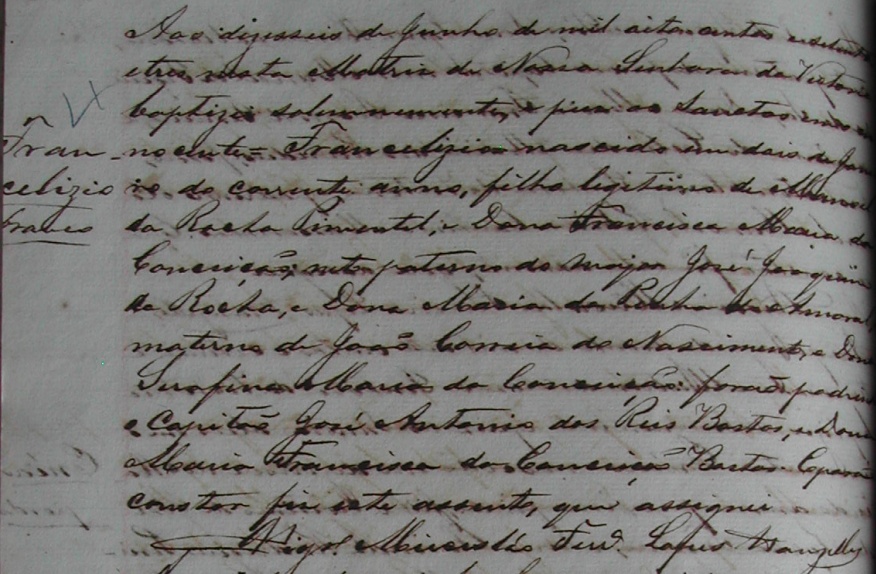 Aos dizesseis de Junho de mil oito centos e setenta
e tres nesta Matriz de Nossa Senhora da Victoria
baptizei solemnemente, e puz os Sanctos
Fran- nocente = Francelizio nascido em dois de Jan
celizio ro do corrente anno, filho legitimo de Manoel
branco da Rocha Pimentel, e Dona Francisca Maria da
Conceição; neto paterno do major José Joaquim
da Rocha, e Dona Maria da Penha do Amoral
materno de João Correia do Nascimento, e Dona
Serafina Maria da Conceição: forão padrin
o Capitão José Antonio dos Reis Bastos, e Dona
Maria Francisca da Conceição Bastos. E para
constar fiz este assento, que assignei
Vigr.º Micesláo Ferr.ª Lopes Wanzeller